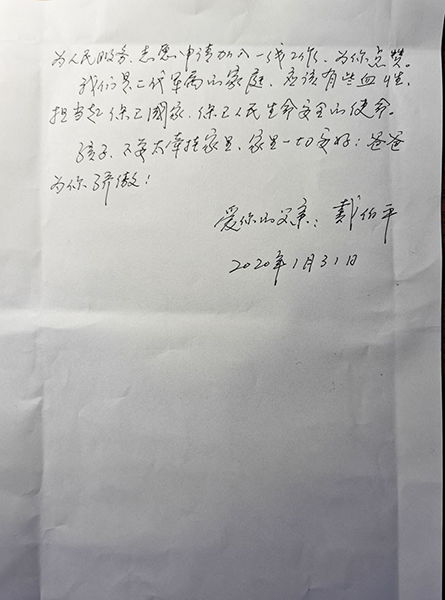 为人民服务，志愿申请加入一线工作，为你点赞。
我们是二代军人的家庭，应该有些血性，
担当起保卫國家、保卫人民生命安全的使命。
孩子，不要太牵挂家里，家里一切安好；爸爸
为你骄傲！
爱你的父亲：戴伯平
2020年1月31日